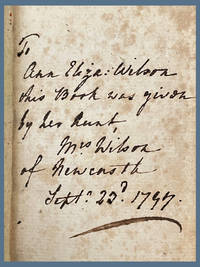 To
Ann Eliza: Wilson
this Book was given
by her Aunt,
Mrs Wilson
of Newcastle
Septr. 23d. 1797.